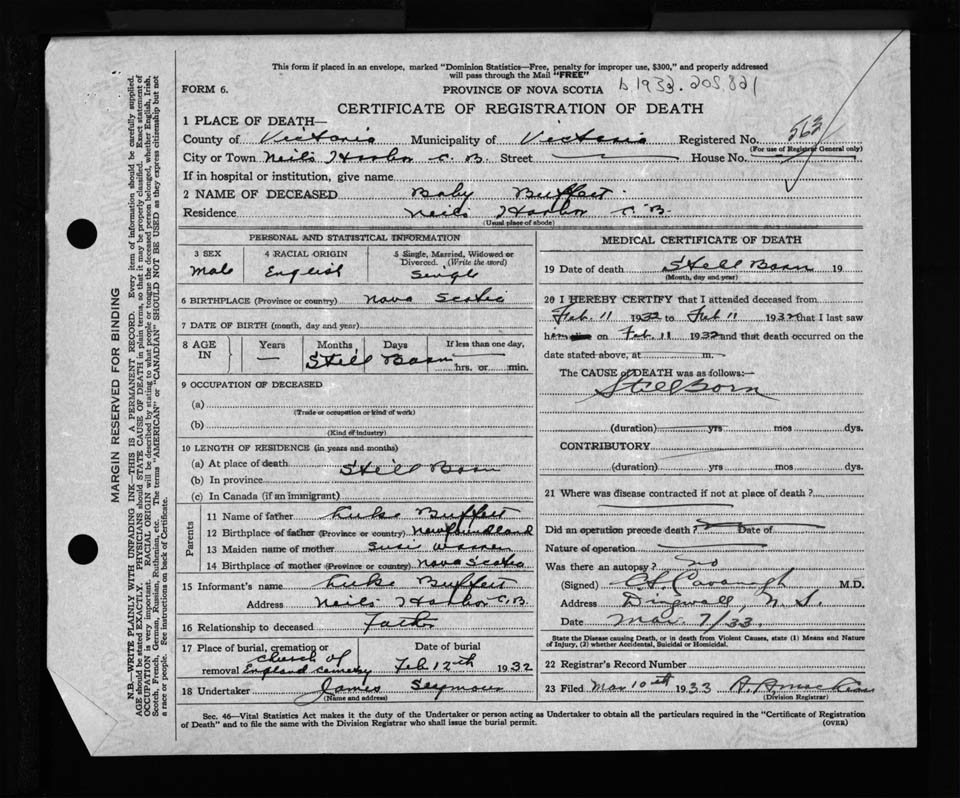 This form if placed in an envelope, marked "Dominion Statistics—Free, penalty for improper use, $300," and properly addressed
will pass through the Mail "FREE"
FORM 6. PROVINCE OF NOVA SCOTIA b 1933. 208,821
CERTIFICATE OF REGISTRATION OF DEATH
1 PLACE OF DEATH—
County of Victoria Municipality of Victoria Registered No. 563
(For use of Registrar General only)
City or Town Neil's Harbor C. B. Street House No.
If in hospital or institution, give name
2 NAME OF DECEASED Baby Buffett
Residence Neils Harbor C. B.
(Usual place of abode)
PERSONAL AND STATISTICAL INFORMATION
3 SEX 4 RACIAL ORIGIN 5 Single, Married, Widowed or
Divorced. (Write the word)
Male English Single
6 BIRTHPLACE (Province or country) Nova Scotia
7 DATE OF BIRTH (month, day and year)
8 AGE IN Years Months Days If less than one day,
— Still Born hrs. or min.
9 OCCUPATION OF DECEASED
(a)
(Trade or occupation or kind of work)
(b)
(Kind of industry)
10 LENGTH OF RESIDENCE (in years and months)
(a) At place of death Still Born
(b) In province
(c) In Canada (if an immigrant)
Parents
11 Name of father Luke Buffett
12 Birthplace of father (Province or country) Newfoundland
13 Maiden name of mother Susie
14 Birthplace of mother (Province or country) Nova Scotia
15 Informant's name Luke Buffett
Address Neils Harbor C. B.
16 Relationship to deceased Father
17 Place of burial, cremation or
removal Church of England cemetery Feb 12th 1932
18 Undertaker James Seymour
(Name and address)
MEDICAL CERTIFICATE OF DEATH
19 Date of death Still Born 19
(Month, day and year)
20 I HEREBY CERTIFY that I attended deceased from
Feb. 11 1932 to Feb 11 1932 that I last saw
h on Feb. 11 1932 and that death occurred on the
date stated above, at m.
The CAUSE of DEATH was as follows:—
Still Born
(duration) yrs mos dys.
CONTRIBUTORY
(duration) yrs mos dys.
21 Where was disease contracted if not at place of death?
Did an operation precede death? Date of
Nature of operation
Was there an autopsy? no
(Signed) Cavanagh M.D.
Address Dingwall, N. S.
Date Mar 7/33.
State the Disease causing Death, or in death from Violent Causes, state (1) Means and Nature
of Injury, (2) whether Accidental, Suicidal or Homicidal.
22 Registrar's Record Number
23 Filed Mar 10th 1933
(Division Registrar)
Sec. 46—Vital Statistics Act makes it the duty of the Undertaker or person acting as Undertaker to obtain all the particulars required in the "Certificate of Registration
of Death" and to file the same with the Division Registrar who shall issue the burial permit. (OVER)
MARGIN RESERVED FOR BINDING
N.B.—WRITE PLAINLY WITH UNFADING INK—THIS IS A PERMANENT RECORD. Every item of information should be carefully supplied.
AGE should be stated EXACTLY. PHYSICIANS should STATE CAUSE OF DEATH in plain terms, so that it may be properly classified. Exact statement of
OCCUPATION is very important. RACIAL ORIGIN will be described by stating to what people or tongue the deceased person belonged, whether English, Irish,
Scotch, French, German, Russian, Ruthenian, etc. The terms "AMERICAN" or "CANADIAN" SHOULD NOT BE USED as they express citizenship but not
a race or people. See instructions on back of Certificate.